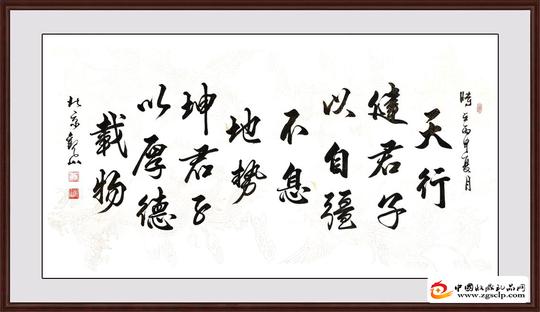 時在丙申夏月
天行
健君子
以自彊
不息
地勢
坤君子
以厚德
載物
中国收藏礼品网
www.zgsclp.com